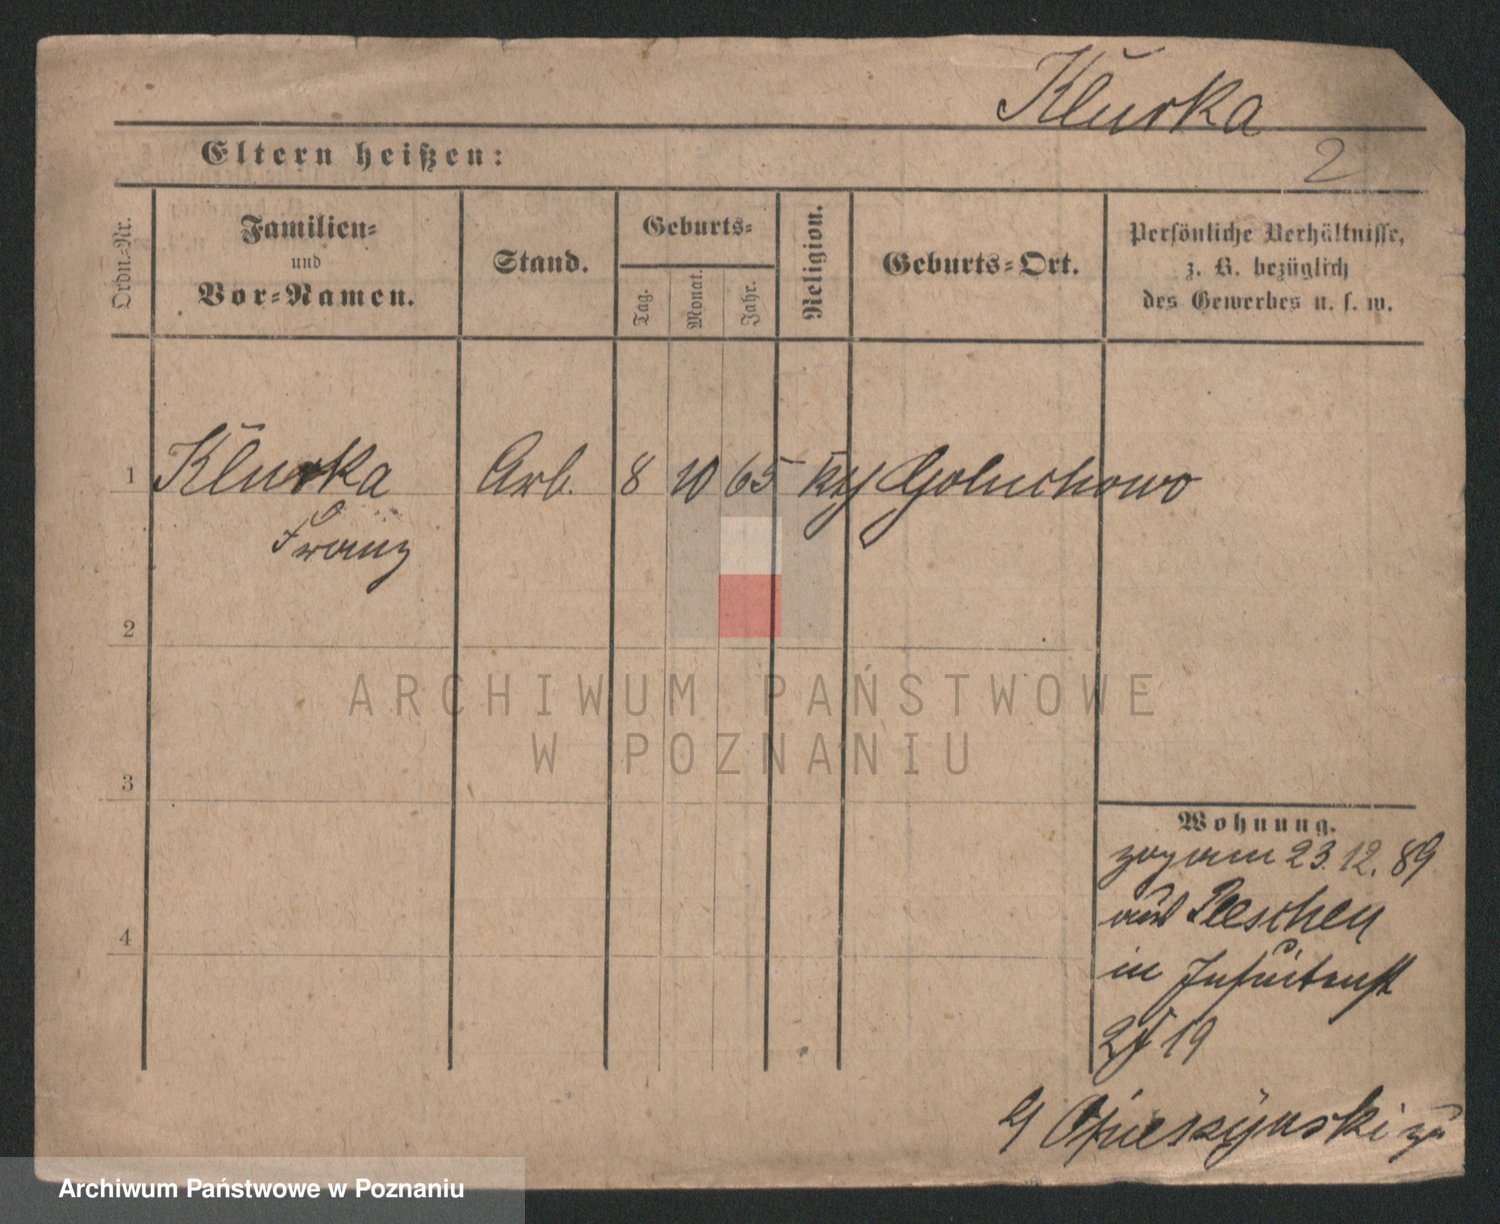 Klurka
2
Eltern heißen:
Ordn.-Nr.
Familien-
und
Vor-Namen.
Stand.
Geburts-
Tag.
Monat.
Jahr.
Religion.
Geburts-Ort.
Persönliche Verhältnisse,
z. B. bezüglich
des Gewerbes u. s. w.
1 Klurka Arb. 8 10 65 Goluchowo
Franz
2
3
4
ARCHIWUM PAŃSTWOWE
W POZNANIU
Wohnung.
23.12.89
aus Pleschen
in
19
Archiwum Państwowe w Poznaniu